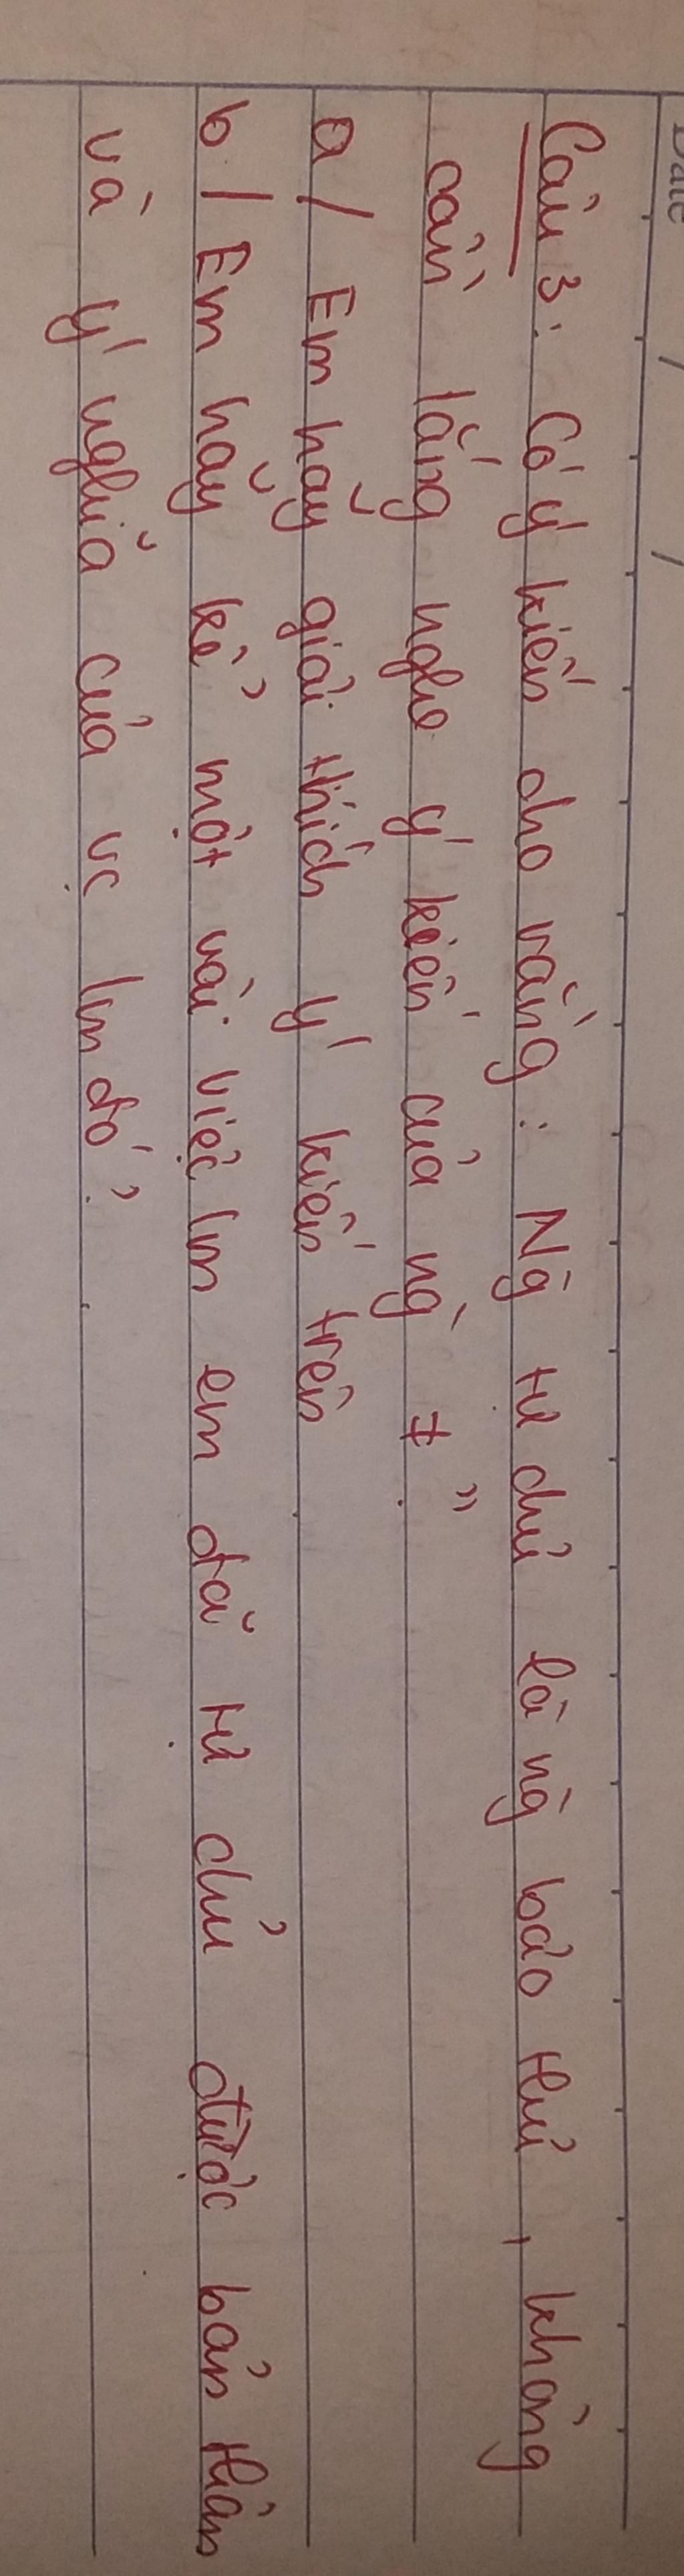 Date / /
Câu 3: Có ý kiến cho rằng: Ng tự chủ là ng bảo thủ, không
cần lắng nghe ý kiến của ng ≠"
a/ Em hãy giải thích ý kiến trên
b/ Em hãy kể một vài việc lm em đã tự chủ được bản thân
và ý nghĩa của vc lm đó?